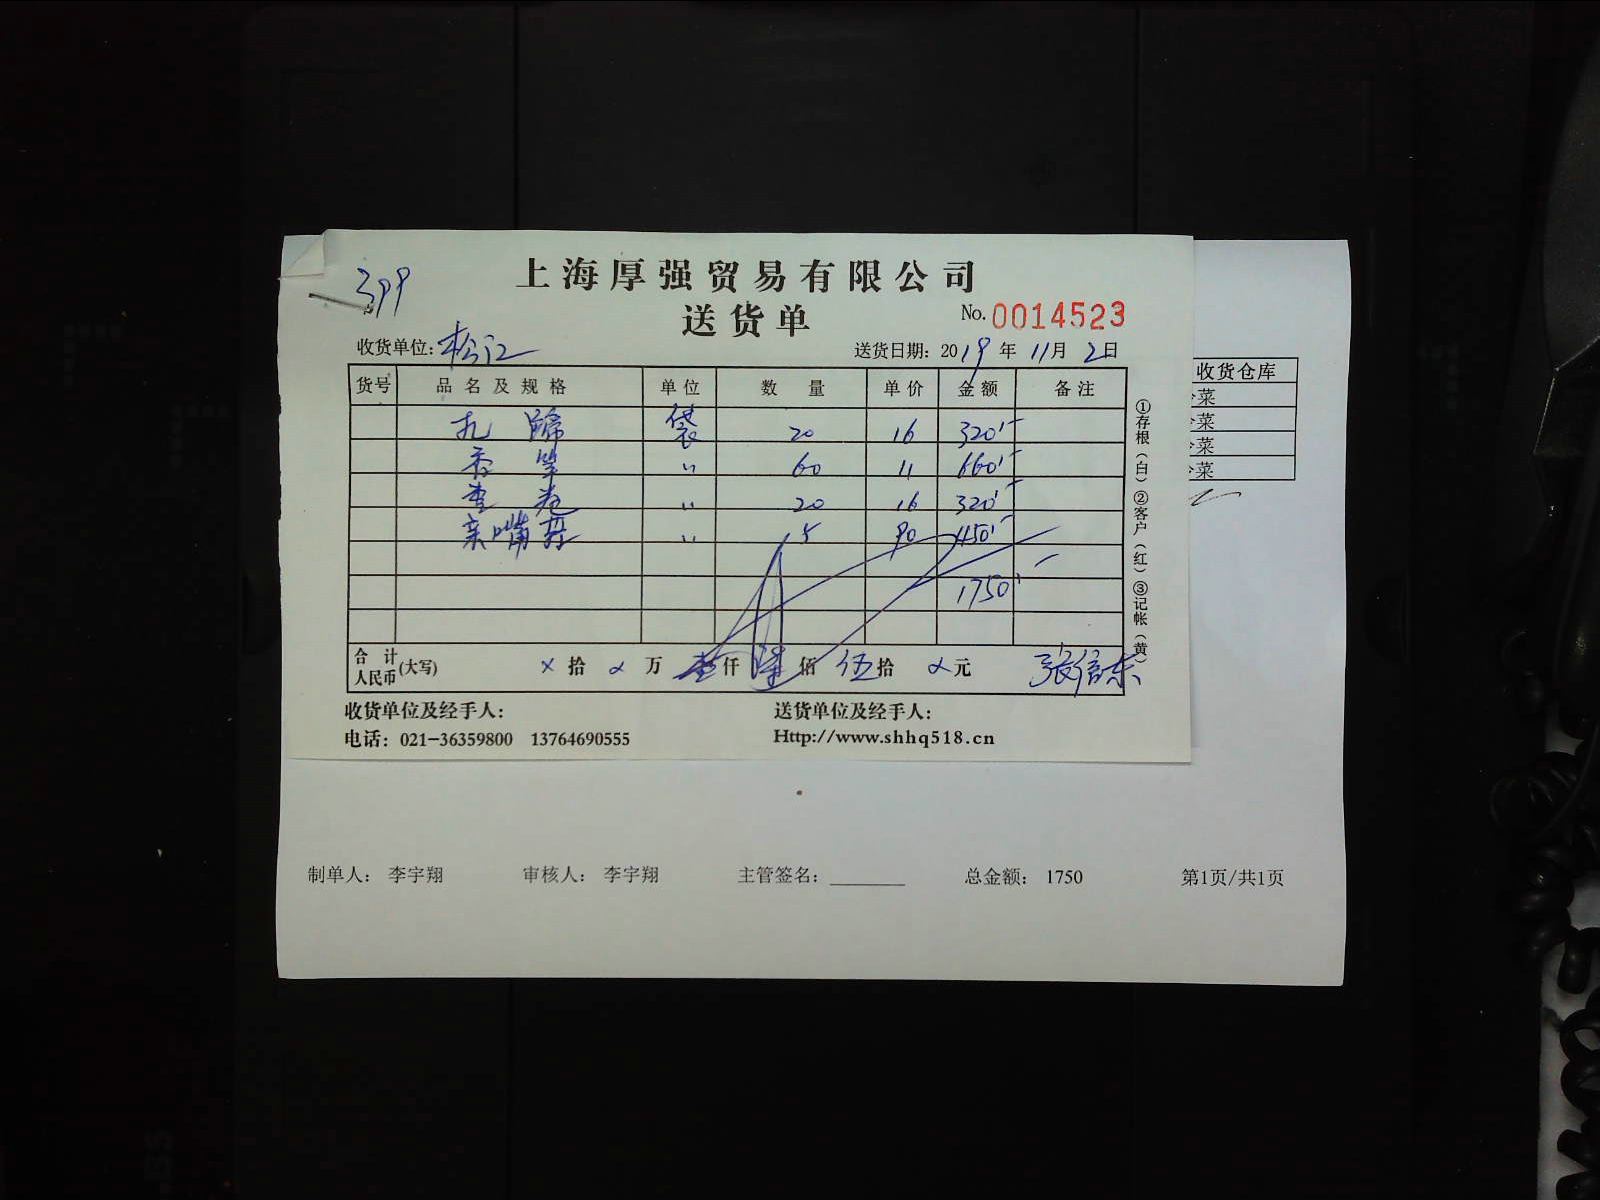 399
上海厚强贸易有限公司
送货单
No. 0014523
收货单位: 松江 送货日期: 2019年11月2日
货号 品名及规格 单位 数量 单价 金额 备注
扎蹄 袋 20 16 320
香笋 〃 60 11 660
20 16 320
亲嘴 〃 5 90 450
1750
合计人民币(大写) × 拾 α 万 壹仟 柒佰 伍拾 α 元 张信东
收货单位及经手人: 送货单位及经手人:
电话: 021-36359800 13764690555 Http://www.shhq518.cn
①存根(白)②客户(红)③记帐(黄)
收货仓库
菜
菜
菜
菜
制单人: 李宇翔 审核人: 李宇翔 主管签名: 总金额: 1750 第1页/共1页